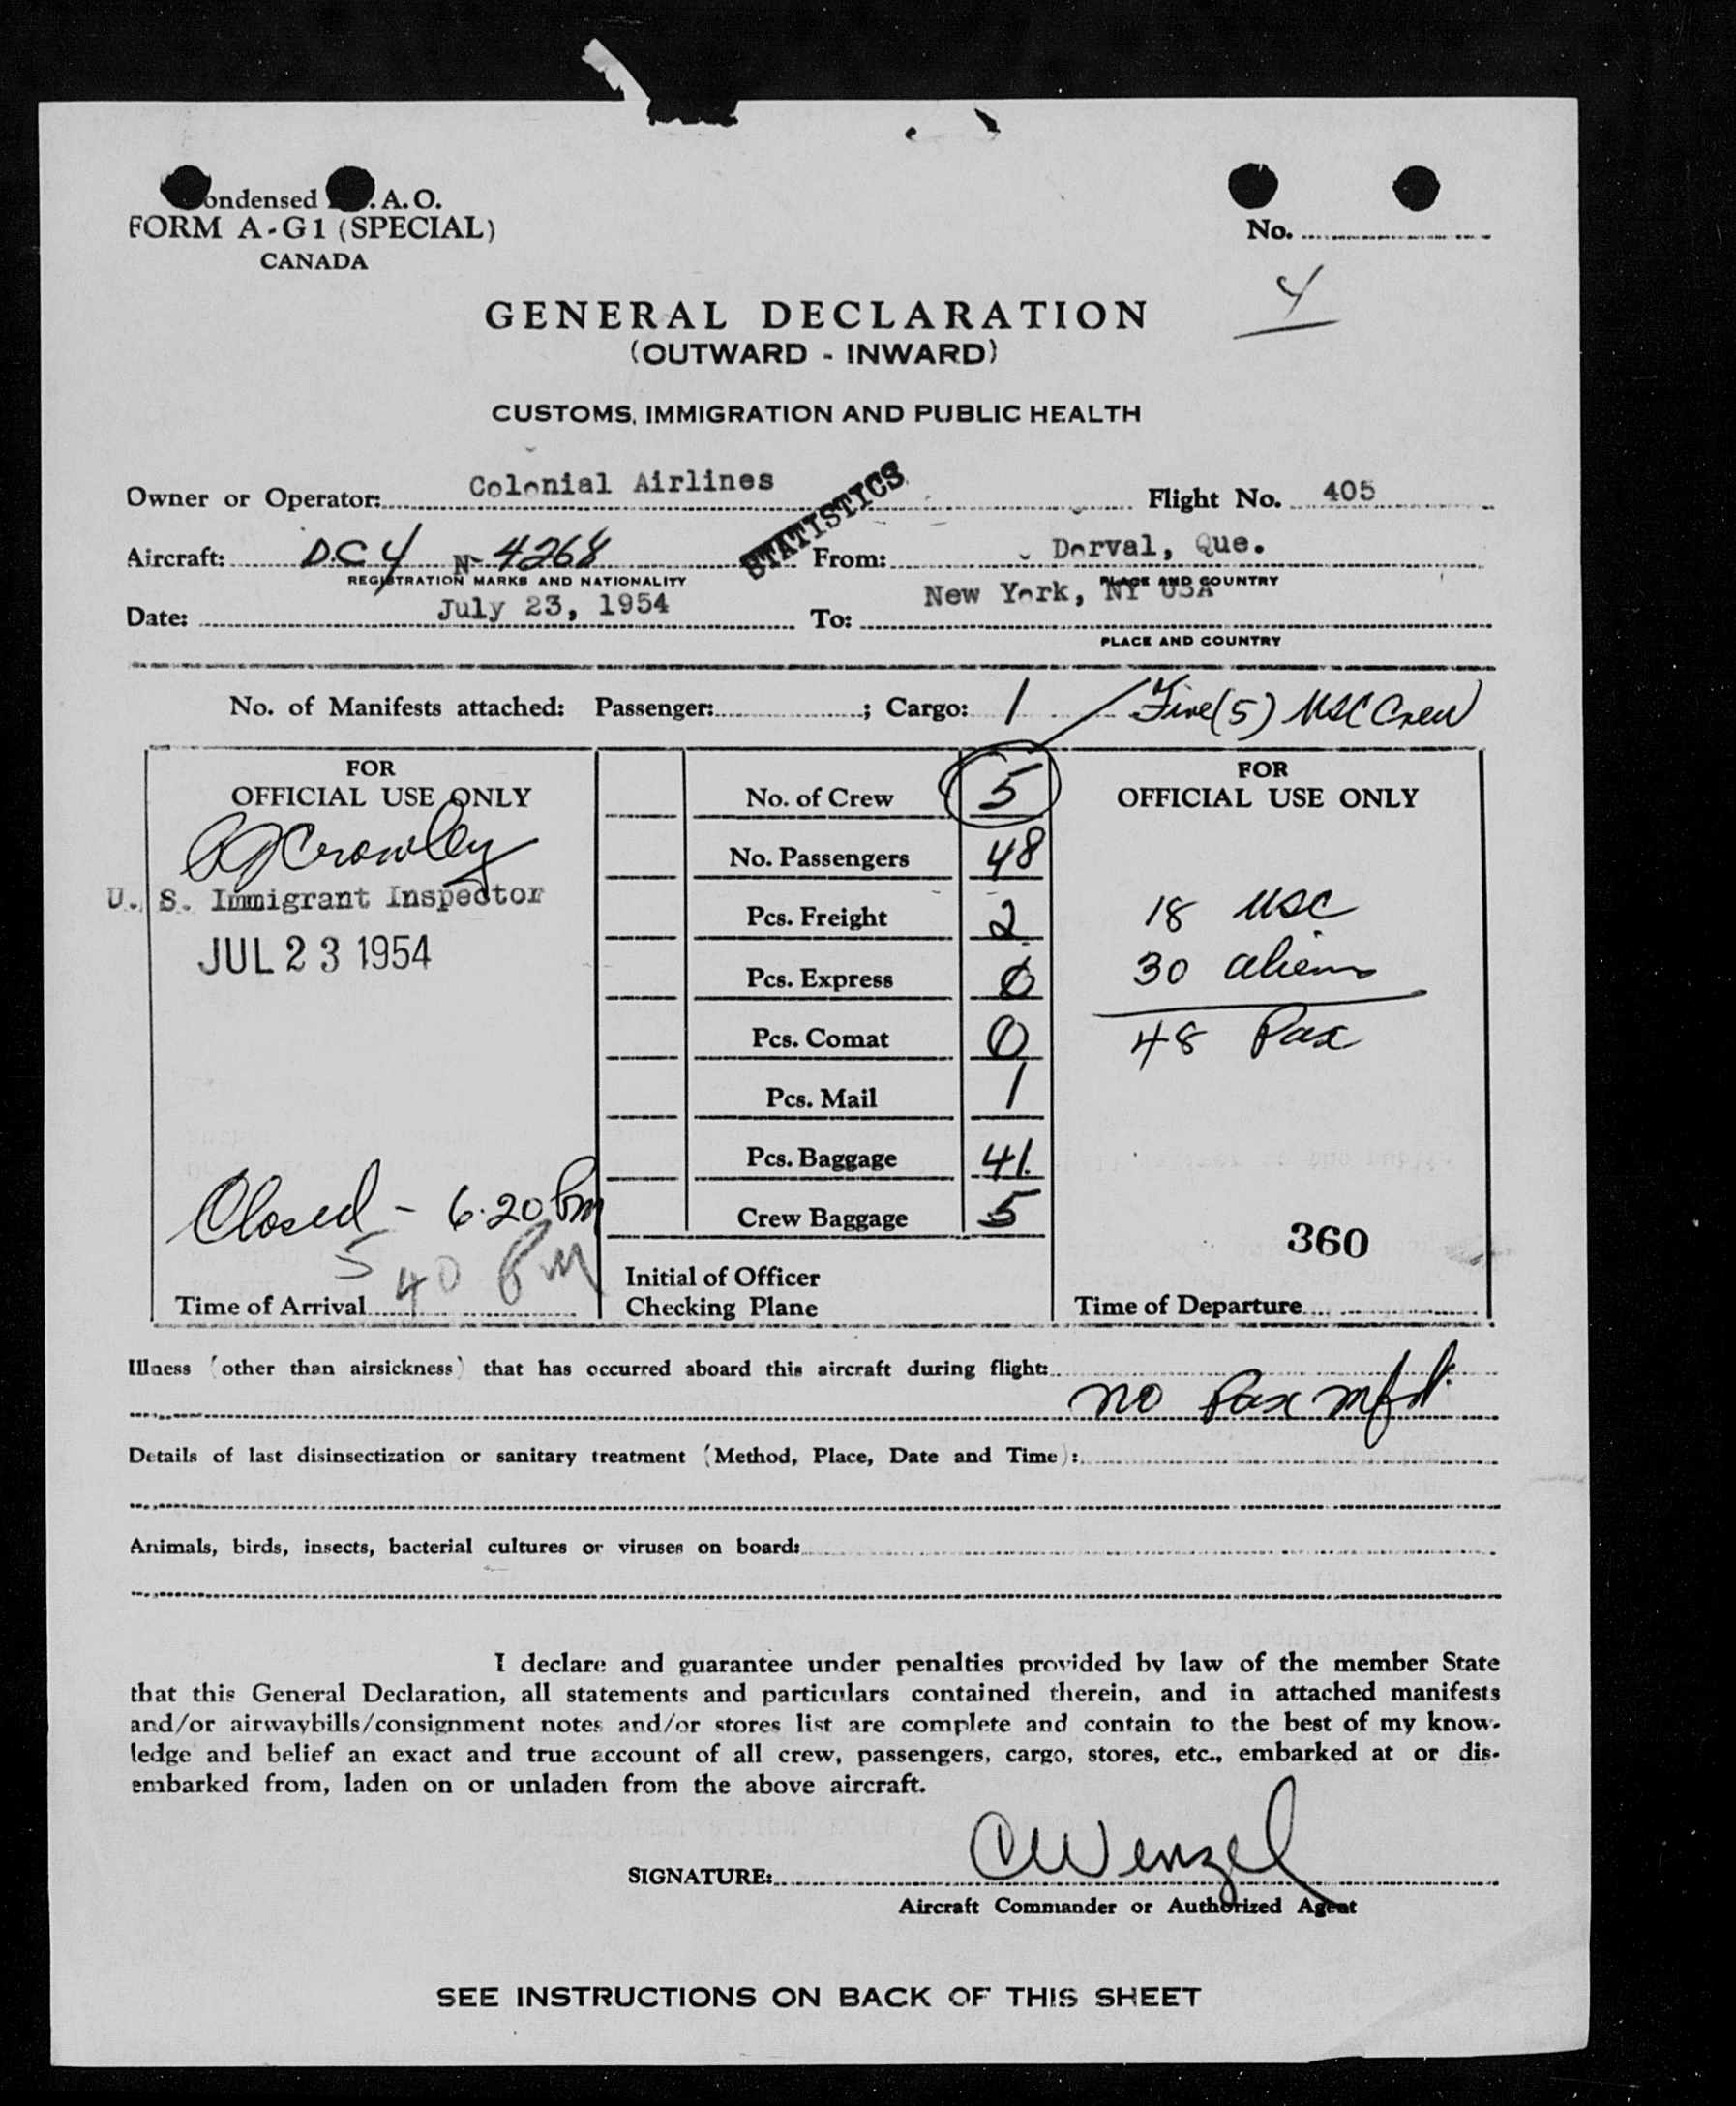 ondensed .A.O.
FORM A-G1 (SPECIAL)
CANADA
No.
4
GENERAL DECLARATION
(OUTWARD - INWARD)
CUSTOMS, IMMIGRATION AND PUBLIC HEALTH
Owner or Operator: Colonial Airlines Flight No. 405
STATISTICS
Aircraft: D.C 4 N- 4268 From: Dorval, Que.
REGISTRATION MARKS AND NATIONALITY PLACE AND COUNTRY
Date: July 23, 1954 To: New York, NY USA
PLACE AND COUNTRY
No. of Manifests attached: Passenger: ; Cargo: 1 Five (5) USC Crew
FOR
OFFICIAL USE ONLY
Crowley
U. S. Immigrant Inspector
JUL 23 1954
Closed - 6.20 Pm
5 40 PM
Time of Arrival
No. of Crew 5
No. Passengers 48
Pcs. Freight 2
Pcs. Express 0
Pcs. Comat 0
Pcs. Mail 1
Pcs. Baggage 41
Crew Baggage 5
Initial of Officer
Checking Plane
FOR
OFFICIAL USE ONLY
18 USC
30 aliens
48 Pax
360
Time of Departure
Illness (other than airsickness) that has occurred aboard this aircraft during flight:
no Pax mfst.
Details of last disinsectization or sanitary treatment (Method, Place, Date and Time):
Animals, birds, insects, bacterial cultures or viruses on board:
I declare and guarantee under penalties provided by law of the member State
that this General Declaration, all statements and particulars contained therein, and in attached manifests
and/or airwaybills/consignment notes and/or stores list are complete and contain to the best of my know-
ledge and belief an exact and true account of all crew, passengers, cargo, stores, etc., embarked at or dis-
embarked from, laden on or unladen from the above aircraft.
SIGNATURE: CWWenzel
Aircraft Commander or Authorized Agent
SEE INSTRUCTIONS ON BACK OF THIS SHEET